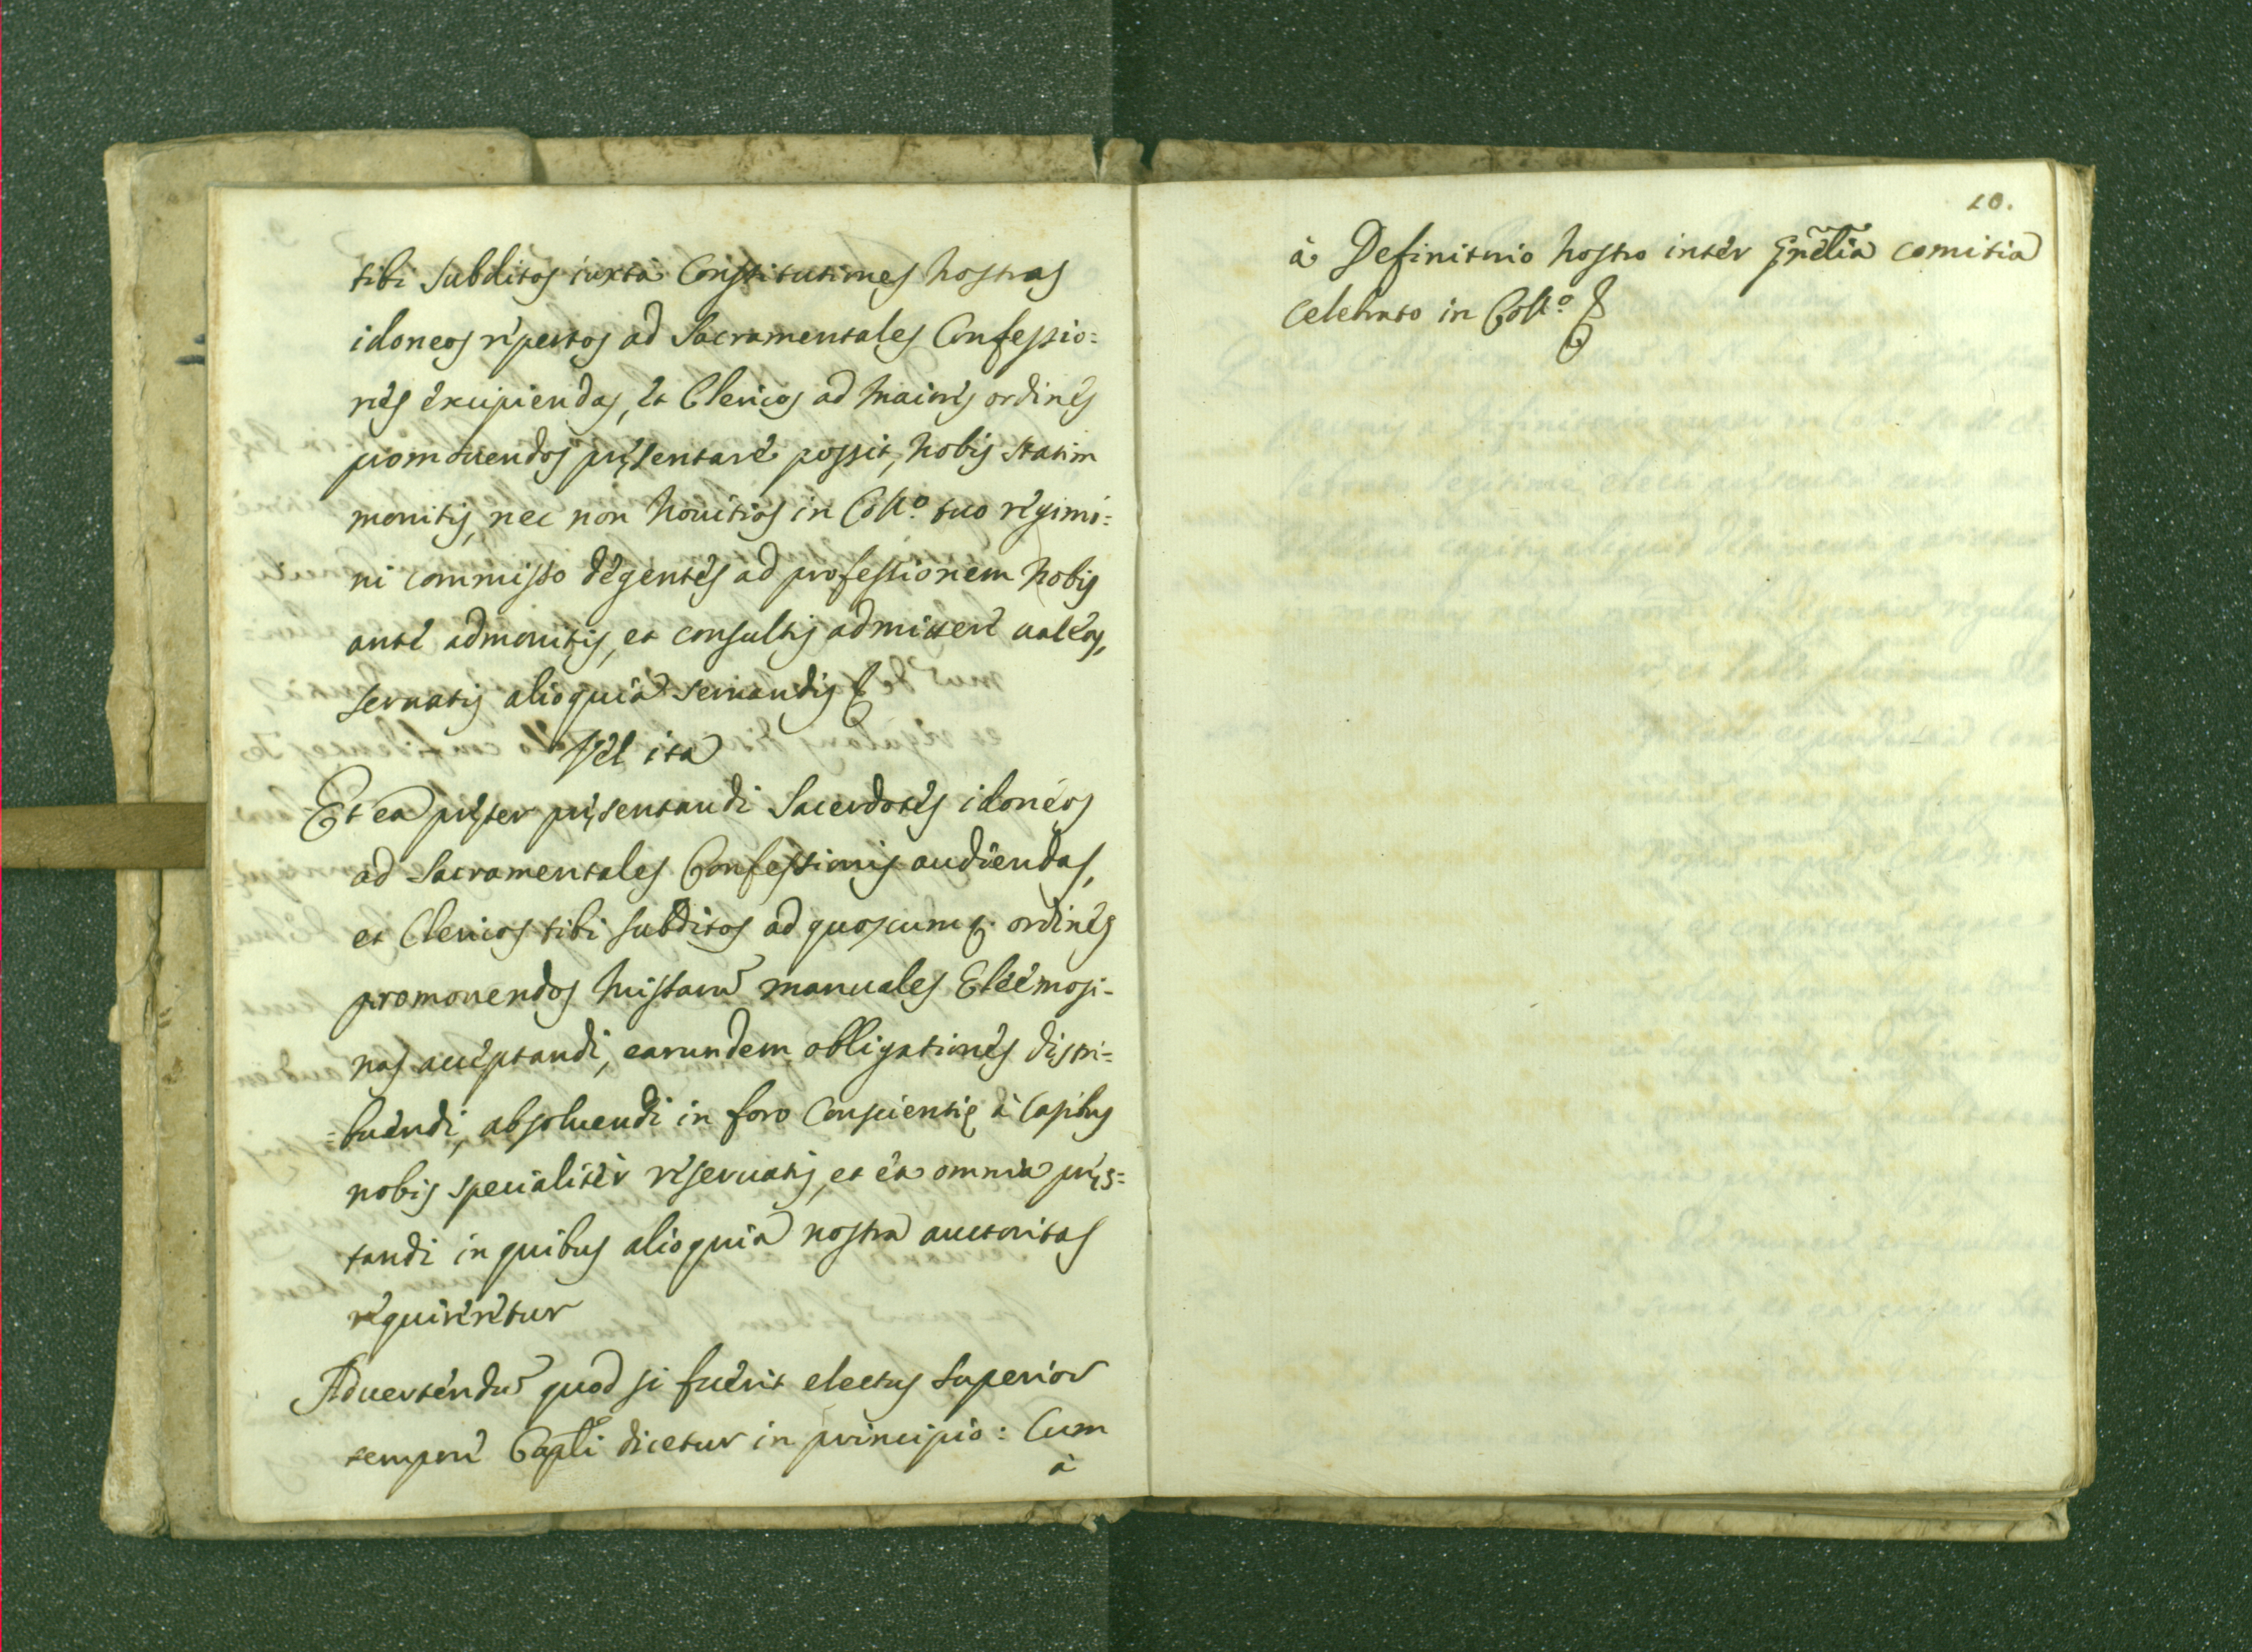 tibi subditos iuxta Constitutiones nostras
idoneos repertos ad Sacramentales Confessio=
nes excipiendas, et Clericos ad maiores ordines
promouendos pręsentare possit, nobis statim
monitis, nec non Nouitios in Coll.º tuo regimi=
ni commisso degentes ad professionem nobis
ante admonitis, et consultis admittere ualeas,
seruatis alioquin seruandis &
Vel ita
Et ea pręter pręsentandi Sacerdotes idoneos
ad Sacramentales Confessionis audiendas,
et Clericos tibi subditos ad quoscumq. ordines
promouendos Missarũ manuales Eleemosi-
nas acceptandi, earundem obligationes distri=
=buendi, absoluendi in foro Conscientię à Casibus
nobis specialiter reseruatis, et ea omnia pręs=
tandi in quibus alioquin nostra auctoritas
requireretur
Aduertendũ quod si fuerit electus Superior
tempore Capli dicetur in principio: Cum
à
10.
à Definitorio nostro inter Gñelia comitia
celebrato in Coll.º &